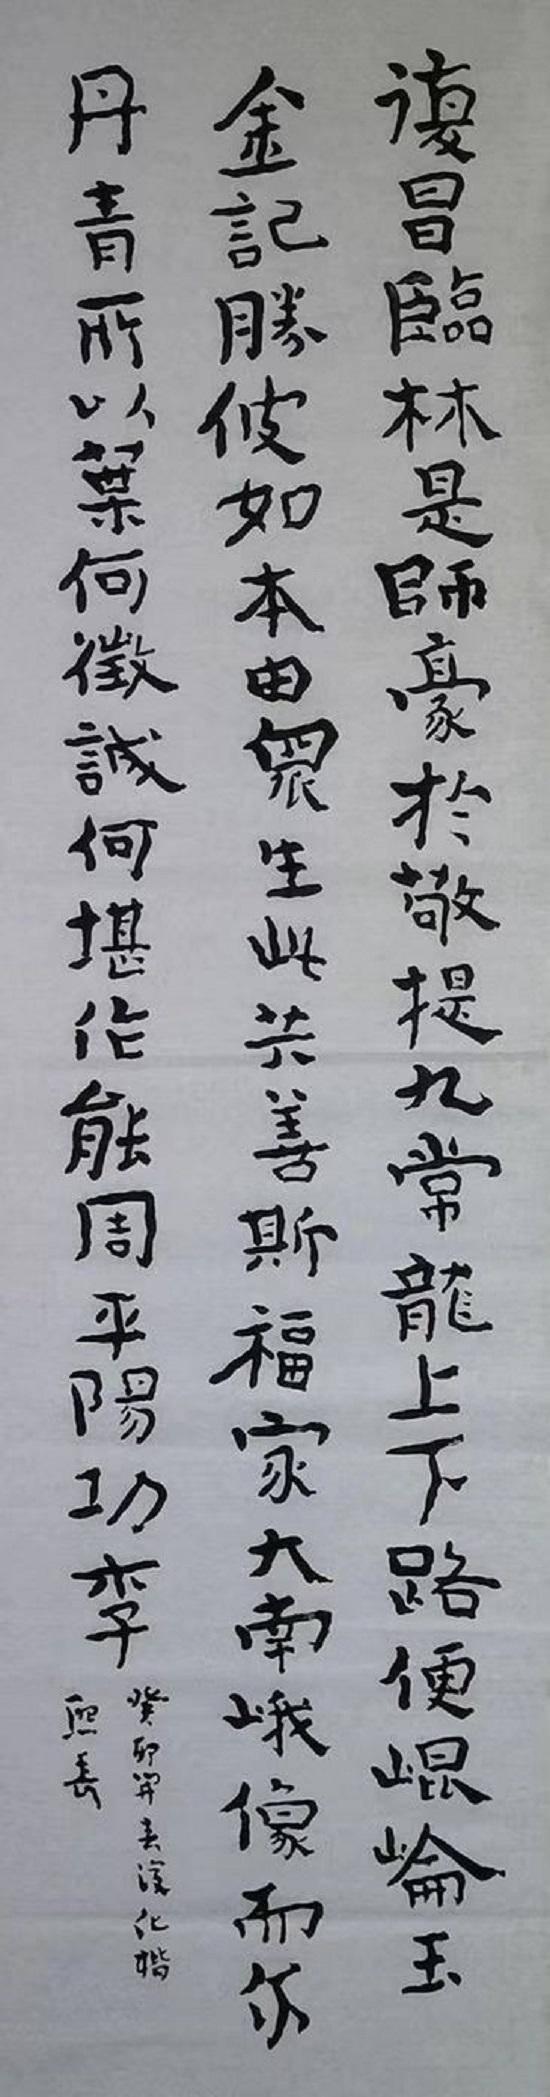 復昌臨林是師豪於敬提九常龍上下路便崐崘玉
金記勝彼如本由眾生此共善斯福家大南峨像而尔
丹青所以葉何徵誠何堪作能周平陽功李
癸卯年春後化楷
熙長